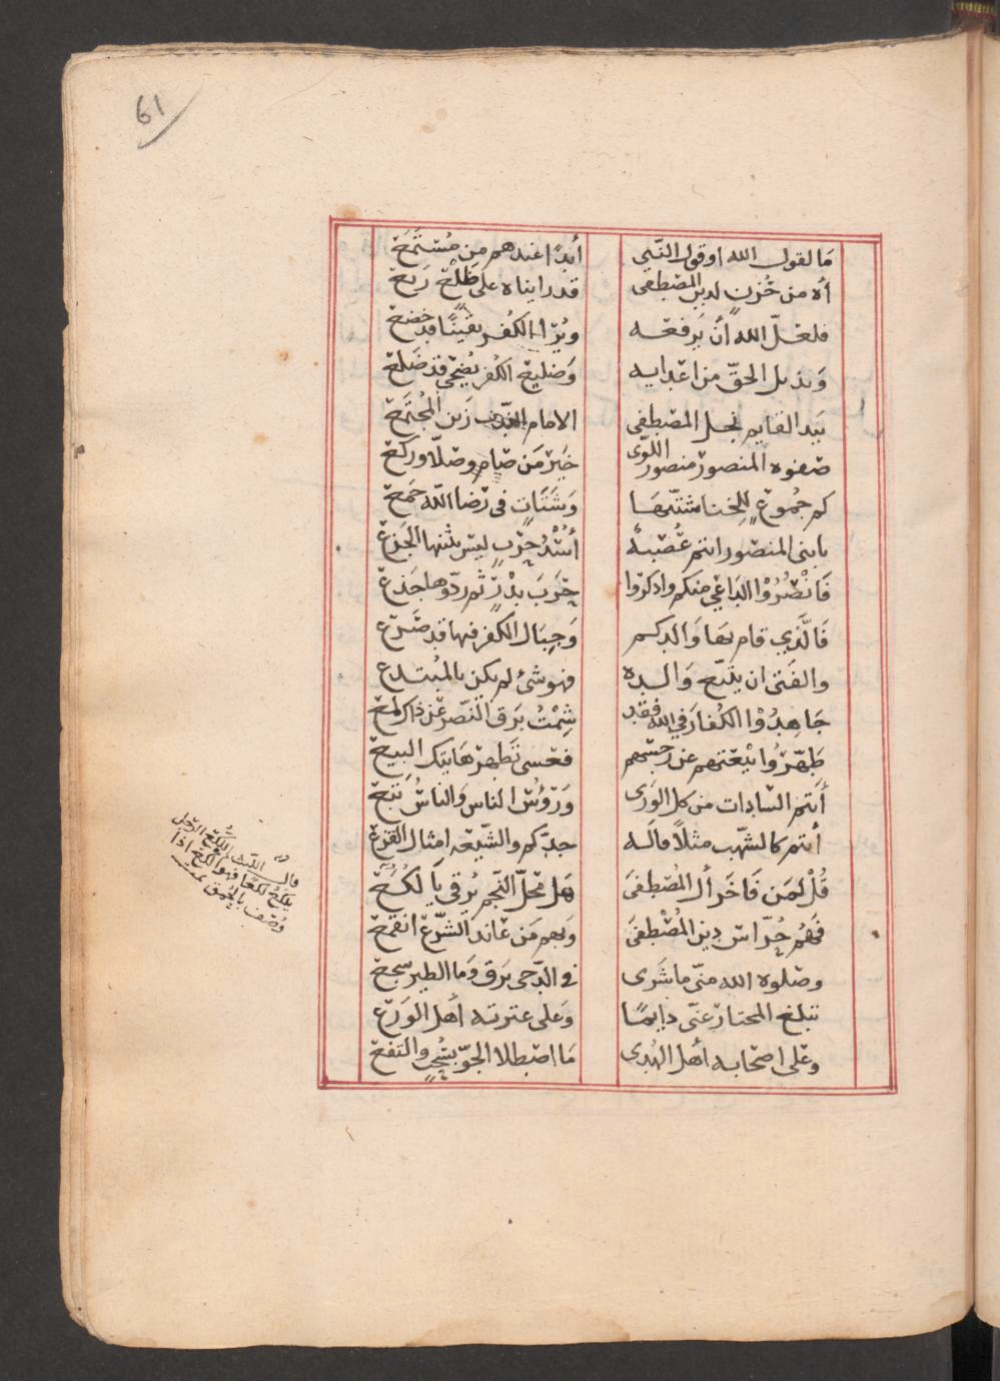 61
مَا لقول الله او قول النّبي أبدًا عندهم من مُسْتَمَع
أه من حُزنٍ لدين المصْطفى قد رايناه على ظَلْعٍ رَبَع
فلعلّ الله أن يَرفعه ويُرَا الكُفر يقينًا قد خضع
وَيديل الحقّ من اعْدايه وَضليع الكُفر يُضحى قد ضَلع
بيَد القايم نجل المصْطفى الامام النّدب زين المُجتَمَع
صفوه المنصور منصور اللّوى خيرَ مَن صَام وصلّا وركع
كم جُموعٍ للِخنا شتّتهَا وَشتَاتٍ فى رضا الله جَمع
يا بنى المنصور انتم عُصْبةٌ أُسْدُ حَرْبٍ ليسَ يثنها الجَزَع
فَانْصُرُوْا الدَاعَي منكم واذكروا حَرَبَ بدْرٍ ثم ردّوها جَذع
فَالَّذي قام بهَا وَالدكم وَجِبَال الكفر فيها قد صَدَع
والفَتى ان يتبَع وَالده فهو شىٌ لم يكن بالمبُتدع
جَاهِدُوْا الكُفارَ في الله فقد شِمْتُ بَرق النّصر عَن ذاكَ لمع
طَهّرُوا بْيعَتهم عن رجسهم فعسى تَطهرهَا تِيك البيع
أنتم السّادات من كل الوَرى وَرؤسُ الناس وَالناسُ تبَع
أنتم كالشّهب مثلاً قاله جدّكم والشّيعَه امثال القزَع
قُلْ لمَن فَاخَر أل المُصْطفىَ هَل مَحلّ النّجم يُرقى يَا لُكَع
فَهُم حُرّاسَ دين المُصْطفىَ وَبهم مَن عَاند الشّرع انقمع
وصَلوه الله منّى ما شَرى فى الدّجى بَرق وَمَا الطير سجع
تبلغ المختار عنّى دايمًا وَعلى عترته أهل الوَرَع
وعلى اصْحابه أهل الهُدى مَا اصْطلا الجوّ بسُحبٍ والتفع
قال الليث لَكِعَ الرّجل
يلكع لكعًا فهو الكع اذا
وُصف بالحُمق